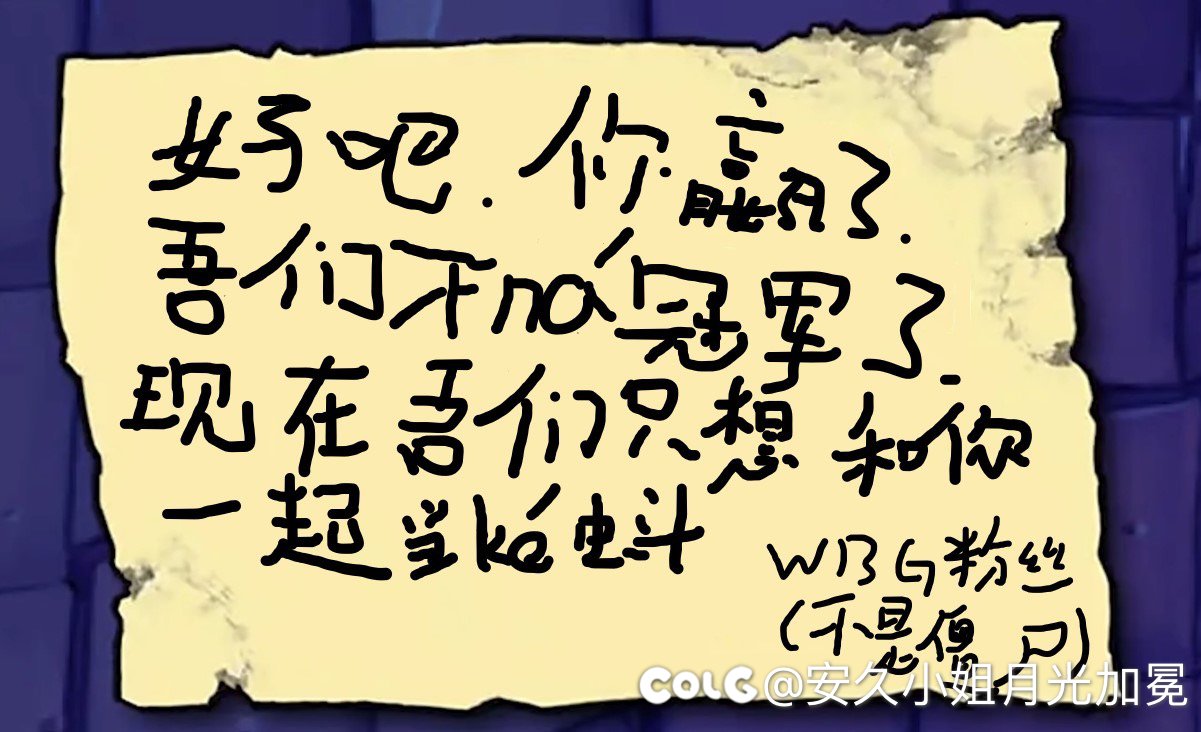 好吧.你赢了.
吾们不ná冠军了.
现在吾们只想和你
一起当ké蚪
WBG粉丝
(不是傻口)
COLG @安久小姐月光加冕